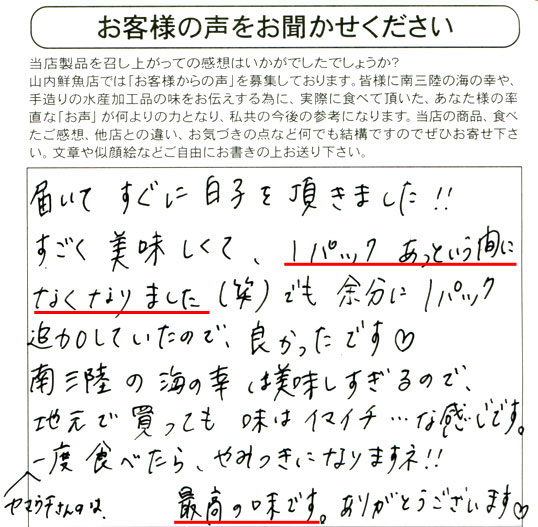 お客様の声をお聞かせください
当店製品を召し上がっての感想はいかがでしたでしょうか？
山内鮮魚店では「お客様からの声」を募集しております。皆様に南三陸の海の幸や、
手造りの水産加工品の味をお伝えする為に、実際に食べて頂いた、あなた様の率
直な「お声」が何よりの力となり、私共の今後の参考になります。当店の商品、食べ
たご感想、他店との違い、お気づきの点など何でも結構ですのでぜひお寄せ下さ
い。文章や似顔絵などご自由にお書きの上お送り下さい。
届いてすぐに白子を頂きました!!
すごく美味しくて、1パックあっという間に
なくなりました(笑)でも余分に1パック
追加していたので、良かったです♡
南三陸の海の幸は美味しすぎるので、
地元で買っても味はイマイチ…な感じです。
一度食べたら、やみつきになりますネ!!
ヤマウチさんのは、
最高の味です。ありがとうございます♡